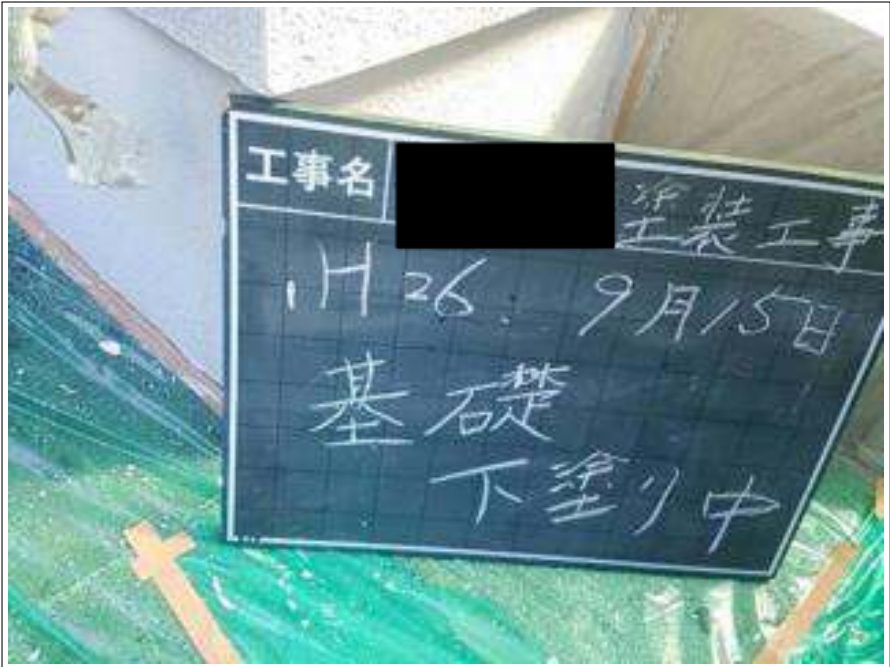 工事名 塗装工事
H26. 9月15日
基礎
下塗り中